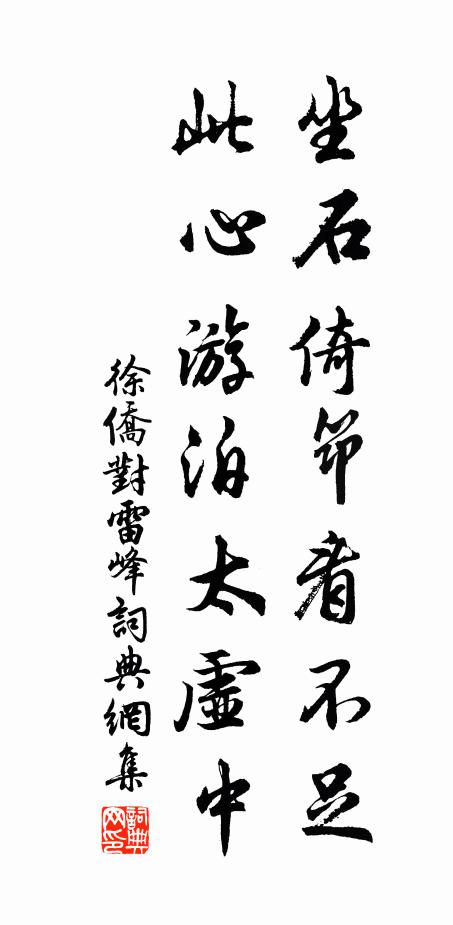 坐石倚筇看不足
此心游泊太虛中
徐僑對雷峰詞典網集
詞典网印